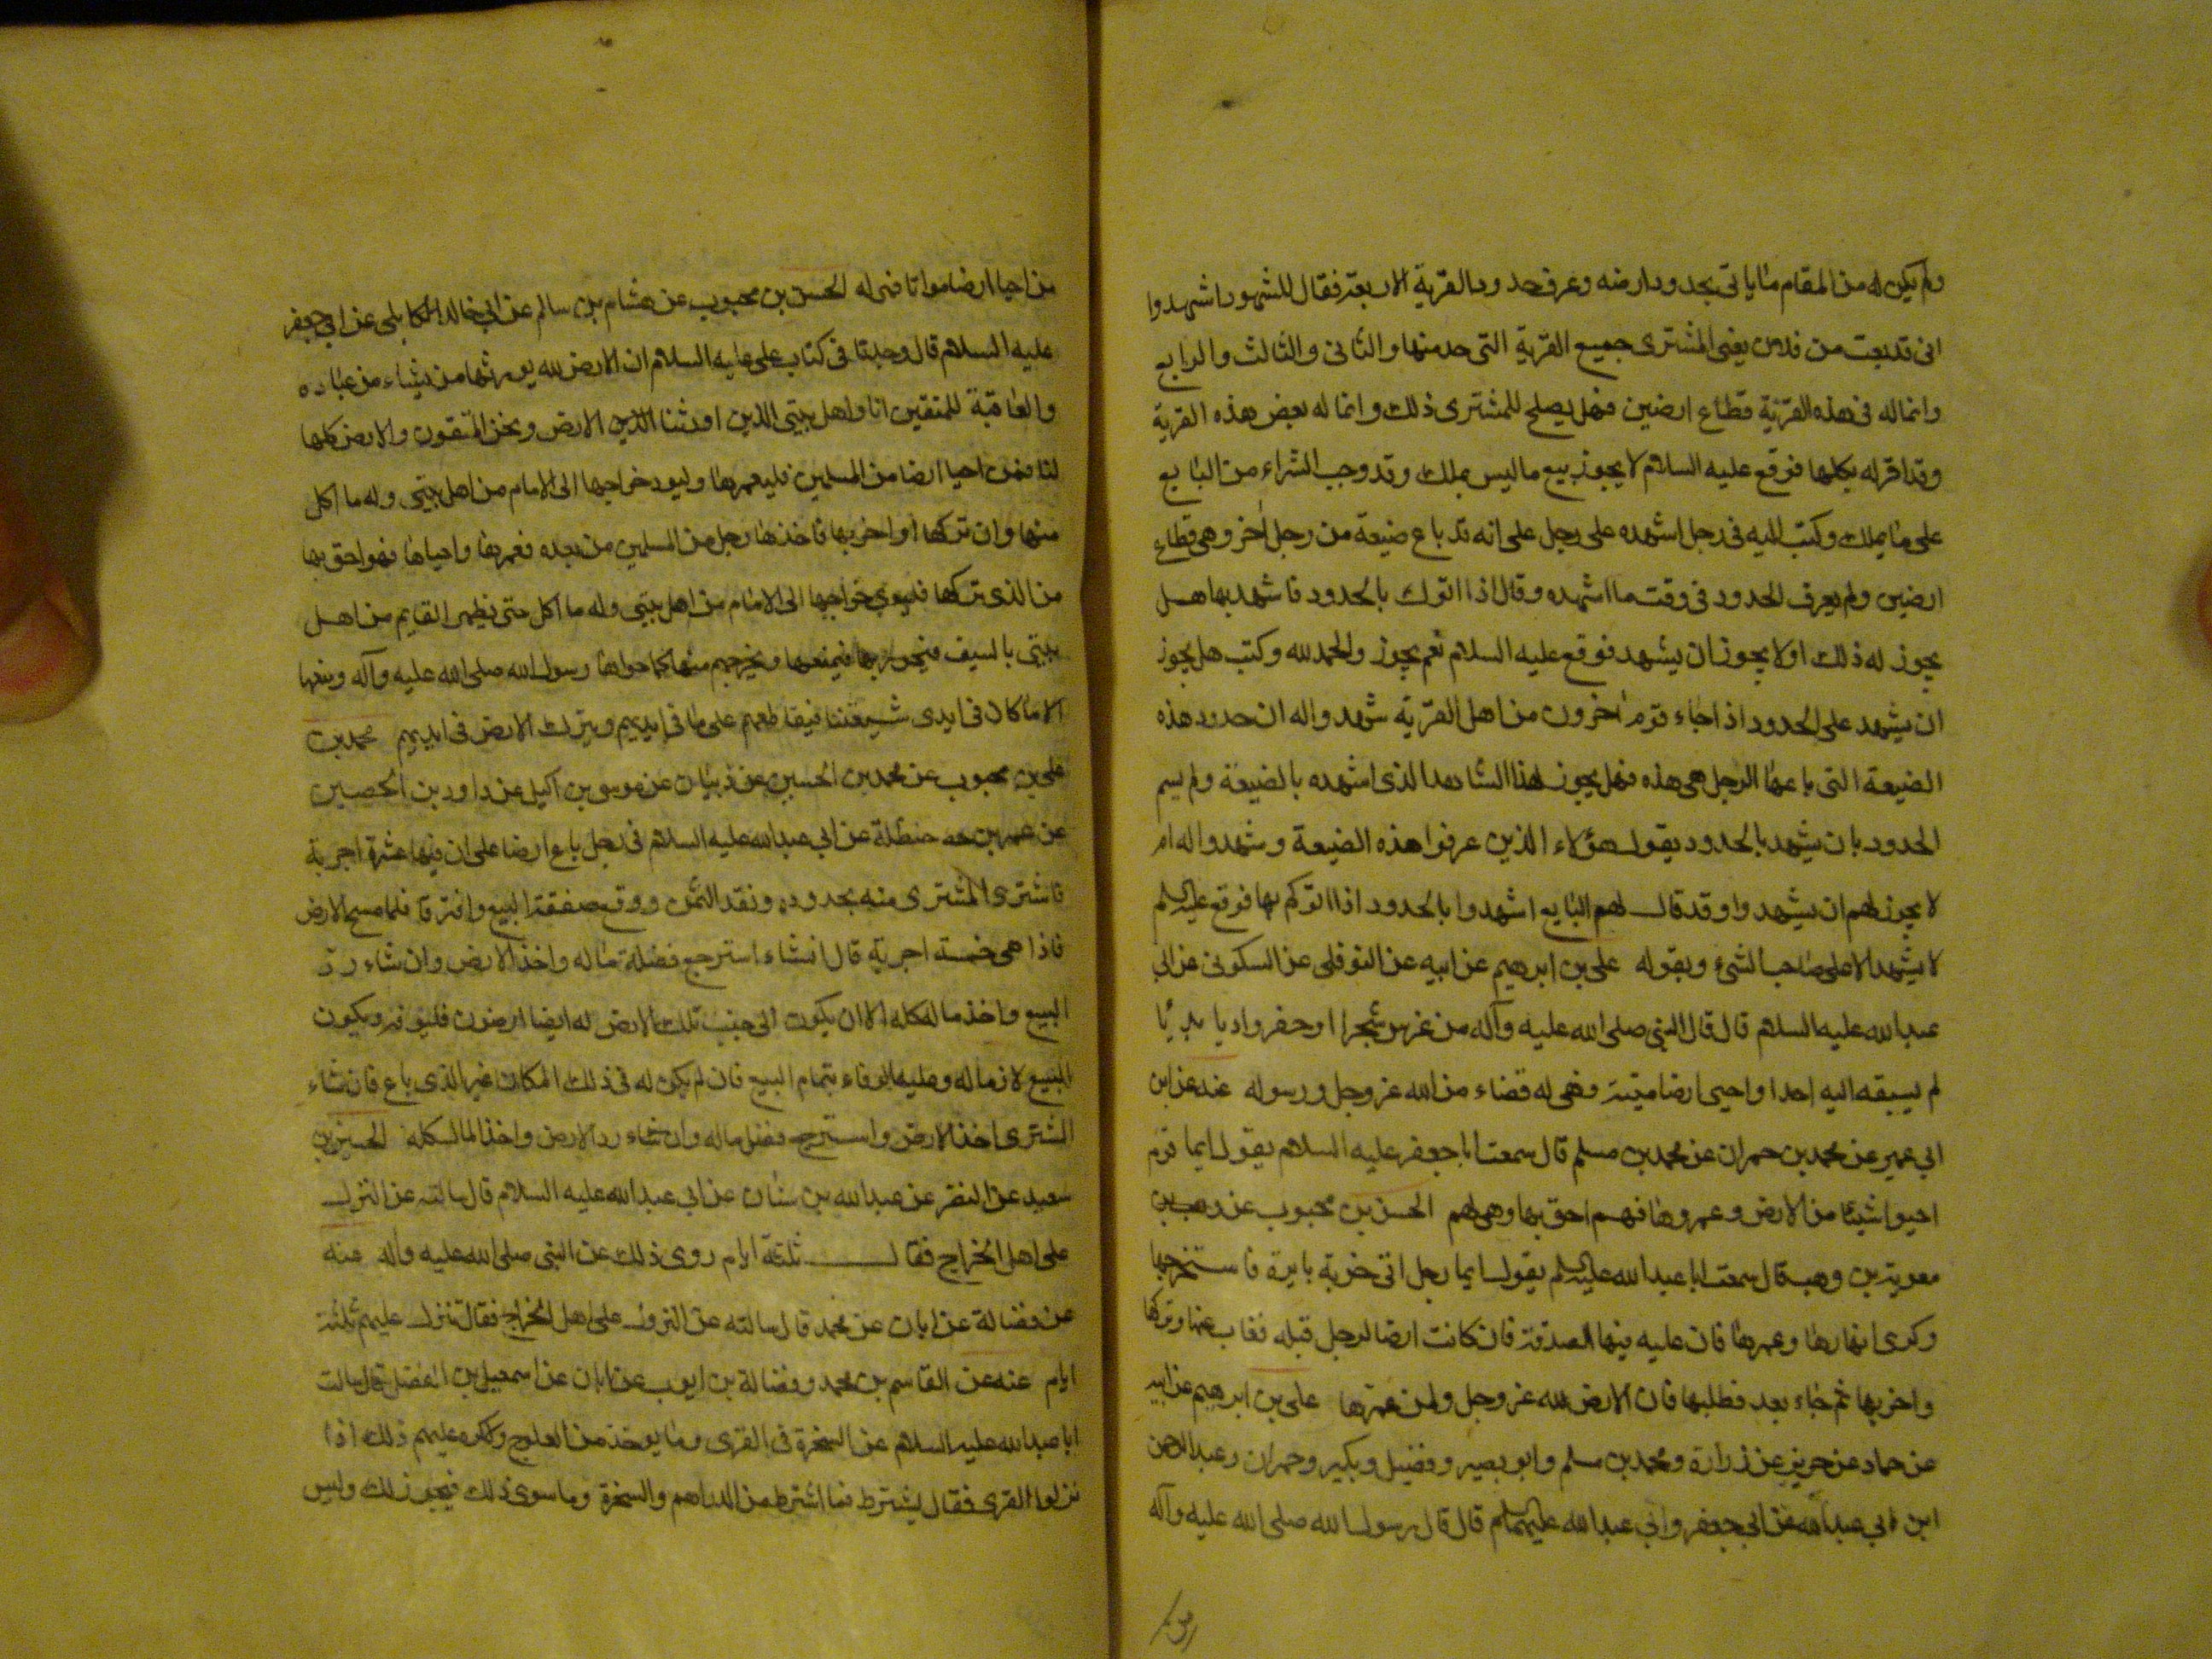 ولم يكن له من المقام ما ياتى بحدود ارضه وعرف حدود القرية الاربعة فقال للشهود اشهدوا
انى قد بعت من فلان يعنى المشترى جميع القرية التى حد منها والثانى والثالث والرابع
وانما له فى هذه القرية قطاع ارضين فهل يصلح للمشترى ذلك وانما له بعض هذه القرية
وقد اقر له بكلها فوقع عليه السلام لا يجوز بيع ما ليس يملك وقد وجب الشراء من البايع
على ما يملك وكتب اليه فى رجل اشهده على رجل على انه قد باع ضيعة من رجل اخر وهى قطاع
ارضين ولم يعرف الحدود فى وقت ما اشهده وقال اذا اتوك بالحدود فاشهد بها هل
يجوز له ذلك او لا يجوز ان يشهد فوقع عليه السلام نعم يجوز والحمد لله وكتب هل يجوز
ان يشهد على الحدود اذا جاء قوم اخرون من اهل القرية شهدوا له ان حدود هذه
الضيعة التى باعها الرجل هى هذه فهل يجوز لهذا الشاهد الذى اشهده بالضيعة ولم يسم
الحدود بان يشهد بالحدود بقول هؤلاء الذين عرفوا هذه الضيعة وشهدوا له ام
لا يجوز لهم ان يشهدوا وقد قال لهم البايع اشهدوا بالحدود اذا اتوكم بها فوقع عليه السلم
لا يشهد الا على صاحب الشىء وبقوله على بن ابرهيم عن ابيه عن النوفلى عن السكونى عن ابى
عبد الله عليه السلام قال قال النبى صلى الله عليه وآله من غرس شجرا او حفر واديا بديًا
لم يسبقه اليه احدا واحيى ارضا ميتة فهى له قضاء من الله عز وجل ورسوله عنه عن ابن
ابى عمير عن محمد بن حمران عن محمد بن مسلم قال سمعت ابا جعفر عليه السلام يقول ايما قوم
احيوا شيئا من الارض وعمروها فهم احق بها وهى لهم الحسن بن محبوب عن وهب بن
معوية بن وهب قال سمعت ابا عبد الله عليه السلم يقول ايما رجل اتى خربة بايرة فاستخرجها
وكرى انهارها وعمرها فان عليه فيها الصدقة فان كانت ارضا لرجل قبله فغاب عنها وتركها
واخربها ثم جاء بعد فطلبها فان الارض لله عز وجل ولمن عمرها على بن ابرهيم عن ابيه
عن حماد عن حريز عن زرارة ومحمد بن مسلم وابو بصير وفضيل وبكير وحمران وعبد الرحمن
ابن ابى عبد الله عن ابى جعفر وابى عبد الله عليهما السلم قال قال رسول الله صلى الله عليه وآله
من احيا ارضا مواتا فهى له الحسن بن محبوب عن هشام بن سالم عن ابى خالد الكابلى عن ابى جعفر
عليه السلام قال وجدنا فى كتاب على عليه السلام ان الارض لله يورثها من يشاء من عباده
والعاقبة للمتقين انا واهل بيتى الذين اورثنا الله الارض ونحن المتقون والارض كلها
لنا فمن احيا ارضا من المسلمين فليعمرها وليود خراجها الى الامام من اهل بيتى وله ما اكل
منها وان تركها او اخربها فاخذها رجل من المسلمين من بعده فعمرها واحياها فهو احق بها
من الذى تركها فليودى خراجها الى الامام من اهل بيتى وله ما اكل حتى يظهر القايم من اهل
بيتى بالسيف فيحويها فيمنعها ويخرجهم منها كما حواها رسول الله صلى الله عليه وآله ومنعها
الا ما كان فى ايدى شيعتنا فيقاطعهم على ما فى ايديهم ويترك الارض فى ايديهم محمد بن
على بن محبوب عن محمد بن الحسين عن ذبيان عن موسى بن اكيل عن داود بن الحصين
عن عمر بن حنظلة عن ابى عبد الله عليه السلام فى رجل باع ارضا على ان فيها عشرة اجربة
فاشترى المشترى منه بحدوده ونقد الثمن ووقع صفقة البيع وافترقا فلما مسح الارض
فاذا هى خمسة اجربة قال ان شاء استرجع فضلة ماله واخذ الارض وان شاء رد
البيع واخذ ماله كله الا ان يكون الى جنب تلك الارض له ايضا ارضون فليوفه ويكون
البيع لازما له وعليه الوفاء بتمام البيع فان لم يكن له فى ذلك المكان غير الذى باع فان شاء
المشترى اخذ الارض واسترجع فضل ماله وان شاء رد الارض واخذ المال كله الحسين بن
سعيد عن النضر عن عبد الله بن سنان عن ابى عبد الله عليه السلام قال سالته عن النزول
على اهل الخراج فقال ثلثة ايام روى ذلك عن النبى صلى الله عليه وآله عنه
عن فضالة عن ابان عن محمد قال سالته عن النزول على اهل الخراج فقال تنزل عليهم ثلثة
ايام عنه عن القاسم بن محمد وفضالة بن ايوب عن ابان عن اسمعيل بن الفضل قال سالت
ابا عبد الله عليه السلام عن السخرة فى القرى وما يوخذ من العلوج وكره عليهم ذلك اذا
نزلوا القرى فقال يشترط فما اشترط من الدراهم والسخرة وما سوى ذلك فيجوز لك وليس